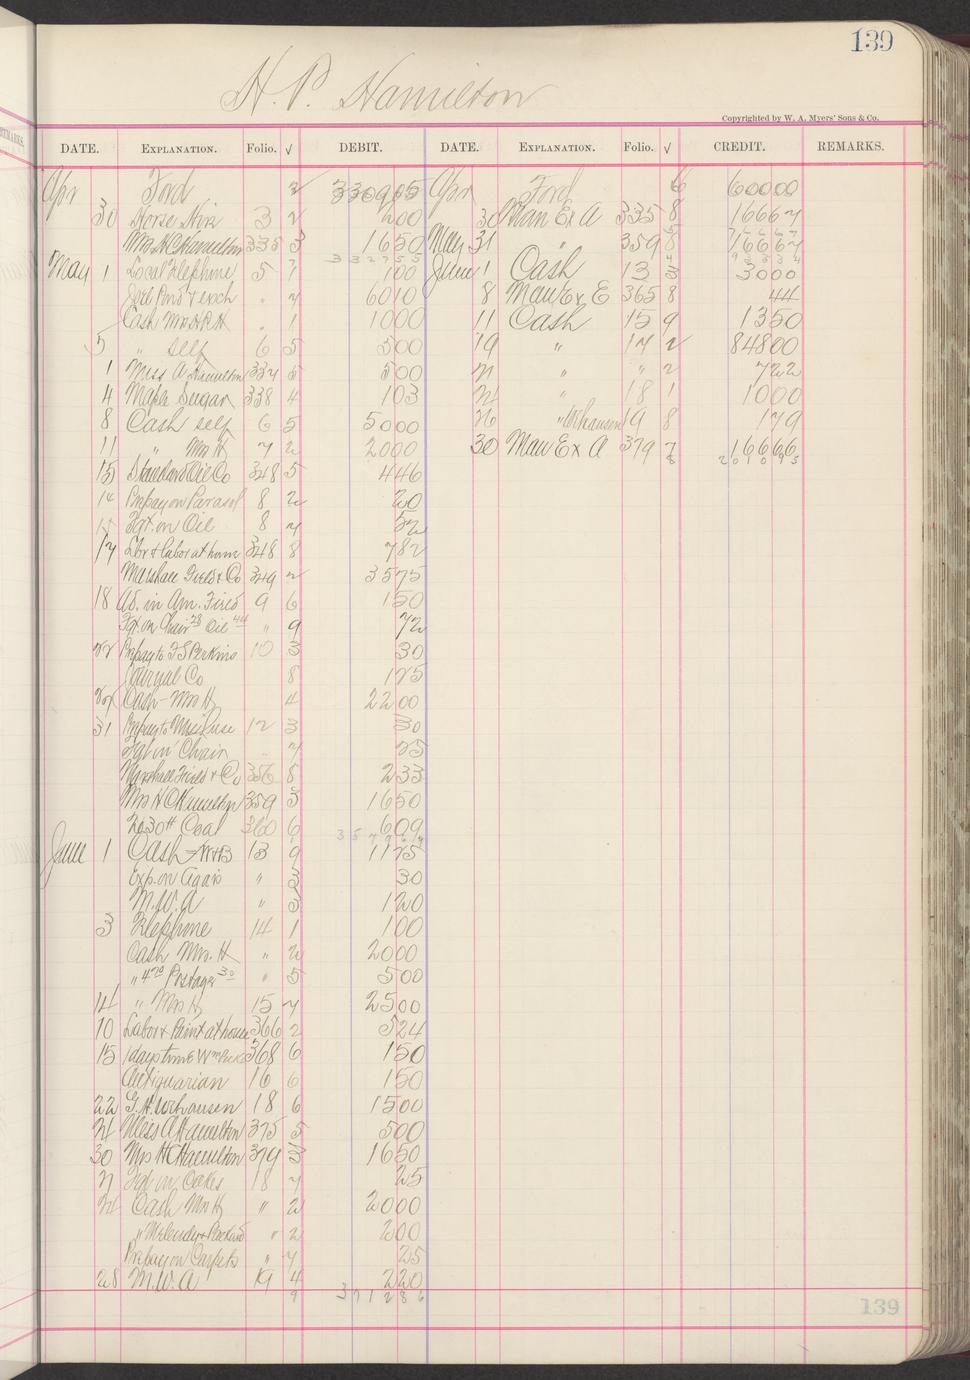 139
H. P. Hamilton
Copyrighted by W. A. Myers' Sons & Co.
DATE. EXPLANATION. Folio. √ DEBIT. DATE. EXPLANATION. Folio. √ CREDIT. REMARKS.
Apr Ford 2 330905 Apr Ford 6 60000
30 Horse Hire 3 2 200 30 Man Ex A 335 8 16667
Mrs H C Hamilton 335 3 1650 May 31 " 359 8 16667
332755
May 1 Local Telephone 5 7 100 June 1 Cash 13 3 3000
" 7 6010 8 Man Ex E 365 8 44
Cash Mrs H P H " 1 1000 11 Cash 15 9 1350
5 " self 6 5 500 19 " 17 2 84800
1 Miss A Hamilton 337 5 500 21 " " 2 722
4 Maple Sugar 338 4 103 24 " 18 1 1000
8 Cash self 6 5 5000 26 " 19 8 179
11 " Mrs H 7 2 2000 30 Man Ex A 379 7 16666
201095
15 Standard Oil Co 348 5 446
14 Prepay on Parasol 8 2 20
15 Fgt. on Oil 8 7 52
17 Lbr & labor at home 348 8 782
Marshall Field & Co 349 2 3575
18 Ad. in Am. Field 9 6 150
Fgt. on Chair 28 Oil 44 " 9 72
22 Prepay to F S Perkins 10 3 30
Co 8 125
Cash - Mrs H 4 2200
31 Prepay to 12 3 30
Fgt on Chair " 7 25
Marshall Field & Co 356 8 233
Mrs H C Hamilton 359 3 1650
2030# Coal 360 6 609
June 1 Cash 13 9 1125
Exp. on " 3 30
M. W. A " 3 120
3 Telephone 14 1 100
Cash Mrs. H " 2 2000
" 470 Postage 30 " 5 500
14 " Mrs H 15 7 2500
10 Labor & Paint at house 366 2 524
15 1 days time Wm 368 6 150
Antiquarian 16 6 150
22 G. H. 18 6 1500
24 Miss A Hamilton 375 5 500
30 Mrs H C Hamilton 379 3 1650
21 Fgt on 18 7 25
24 Cash Mrs H " 2 2000
" " 2 200
Prepay on Carpets " 7 25
28 M. W. A 19 4 220
9 371286
139